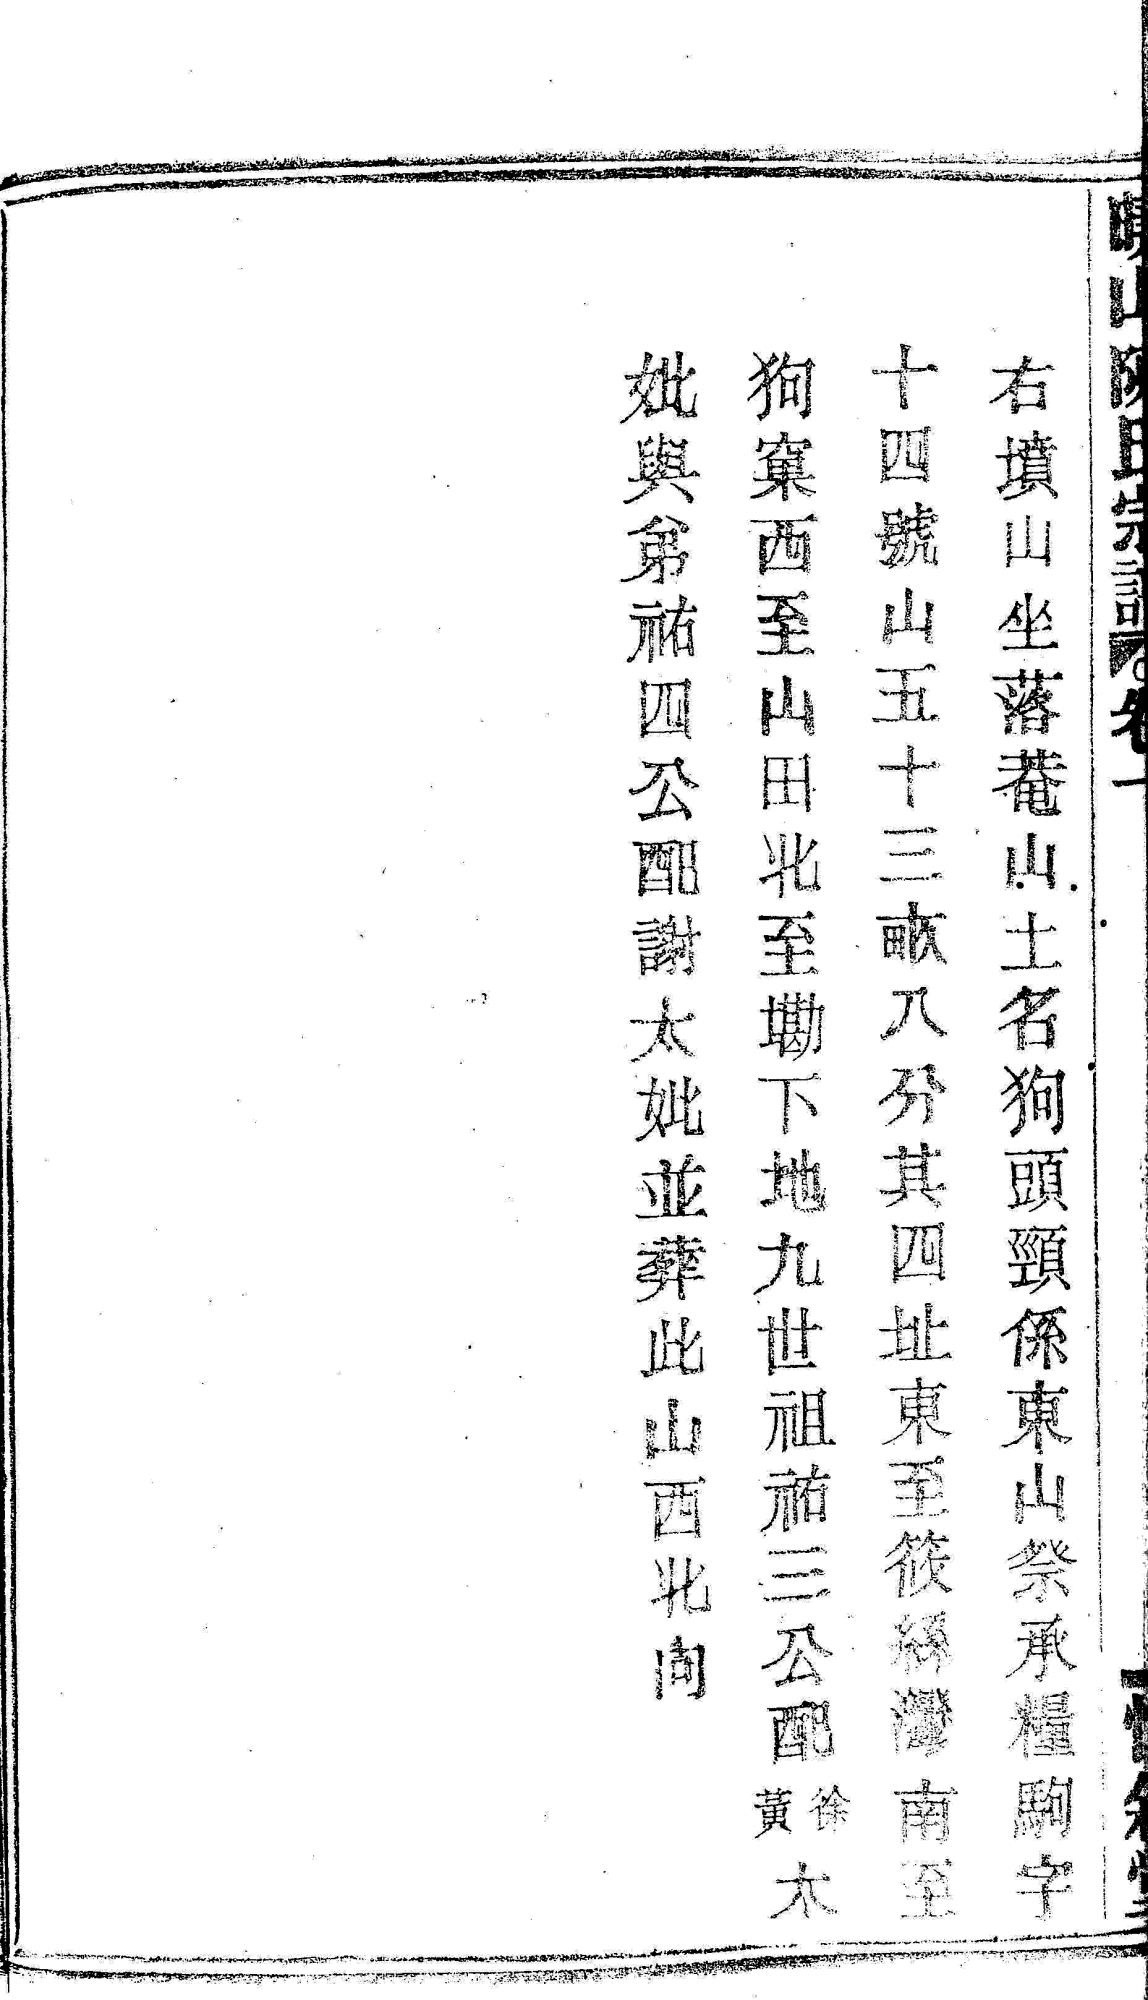 山陳氏宗譜 卷一
右墳山坐落菴山土名狗頭頸係東山祭承糧駒字
十四號山五十三畝八分其四址東至筱絲灣南至
狗窠西至山田北至墈下地九世祖祐三公配徐黃太
妣與弟祐四公配謝太妣並葬此山西北向